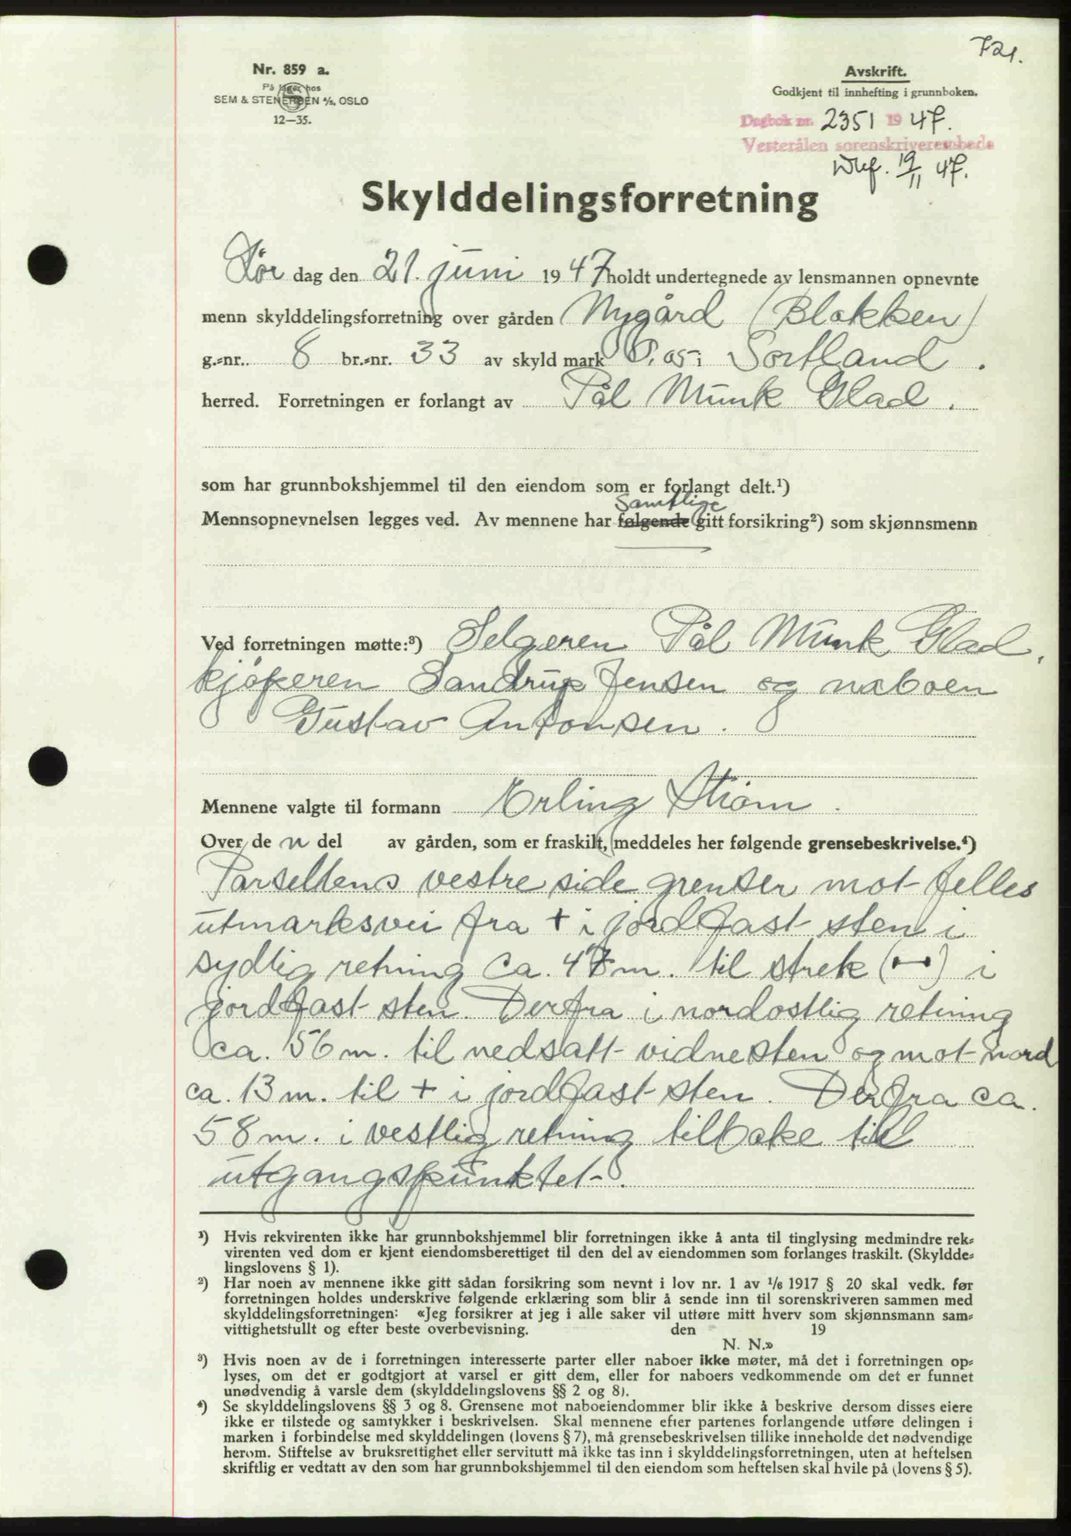 721.
Nr. 859 a.
På lager hos
SEM & STENERSEN A/S, OSLO
12—35.
Avskrift.
Godkjent til innhefting i grunnboken.
Dagbok nr. 2351 1947.
Vesterålen sorenskriverembede
19/11 47.
Skylddelingsforretning
Lør dag den 21. juni 1947 holdt undertegnede av lensmannen opnevnte
menn skylddelingsforretning over gården Nygård (Blokken)
g.-nr. 8 br.-nr. 33 av skyld mark 0,05 i Sortland.
herred. Forretningen er forlangt av Pål Munk Glad.
som har grunnbokshjemmel til den eiendom som er forlangt delt.¹)
Samtlige
Mennsopnevnelsen legges ved. Av mennene har følgende gitt forsikring²) som skjønnsmenn
Ved forretningen møtte:³) Selgeren Pål Munk Glad,
kjøperen Sandrup Jensen og naboen
Gustav Antonsen.
Mennene valgte til formann Erling Strøm.
Over de n del av gården, som er fraskilt, meddeles her følgende grensebeskrivelse.⁴)
Parsellens vestre side grenser mot felles
utmarksvei fra + i jordfast sten i
sydlig retning ca. 47 m. til strek (↔) i
jordfast sten. Derfra i nordostlig retning
ca. 56 m. til nedsatt vidnesten og mot nord
ca. 13 m. til + i jordfast sten. Derfra ca.
58 m. i vestlig retning tilbake til
utgangspunktet.
¹) Hvis rekvirenten ikke har grunnbokshjemmel blir forretningen ikke å anta til tinglysing medmindre rek-
virenten ved dom er kjent eiendomsberettiget til den del av eiendommen som forlanges fraskilt. (Skyldde-
lingslovens § 1).
²) Har noen av mennene ikke gitt sådan forsikring som nevnt i lov nr. 1 av 1/6 1917 § 20 skal vedk. før
forretningen holdes underskrive følgende erklæring som blir å sende inn til sorenskriveren sammen med
skylddelingsforretningen: «Jeg forsikrer at jeg i alle saker vil utføre mitt hverv som skjønnsmann sam-
vittighetsfullt og efter beste overbevisning. den 19
N. N.»
³) Hvis noen av de i forretningen interesserte parter eller naboer ikke møter, må det i forretningen op-
lyses, om det er godtgjort at varsel er gitt dem, eller for naboers vedkommende om det er funnet
unødvendig å varsle dem (skylddelingslovens §§ 2 og 8).
⁴) Se skylddelingslovens §§ 3 og 8. Grensene mot naboeiendommer blir ikke å beskrive dersom disses eiere
ikke er tilstede og samtykker i beskrivelsen. Skal mennene efter partenes forlangende utføre delingen i
marken i forbindelse med skylddelingen (lovens § 7), må grensebeskrivelsen tillike inneholde det nødvendige
herom. Stiftelse av bruksrettighet eller servitutt må ikke tas inn i skylddelingsforretningen, uten at heftelsen
skriftlig er vedtatt av den som har grunnbokshjemmel til den eiendom som heftelsen skal hvile på (lovens § 5).